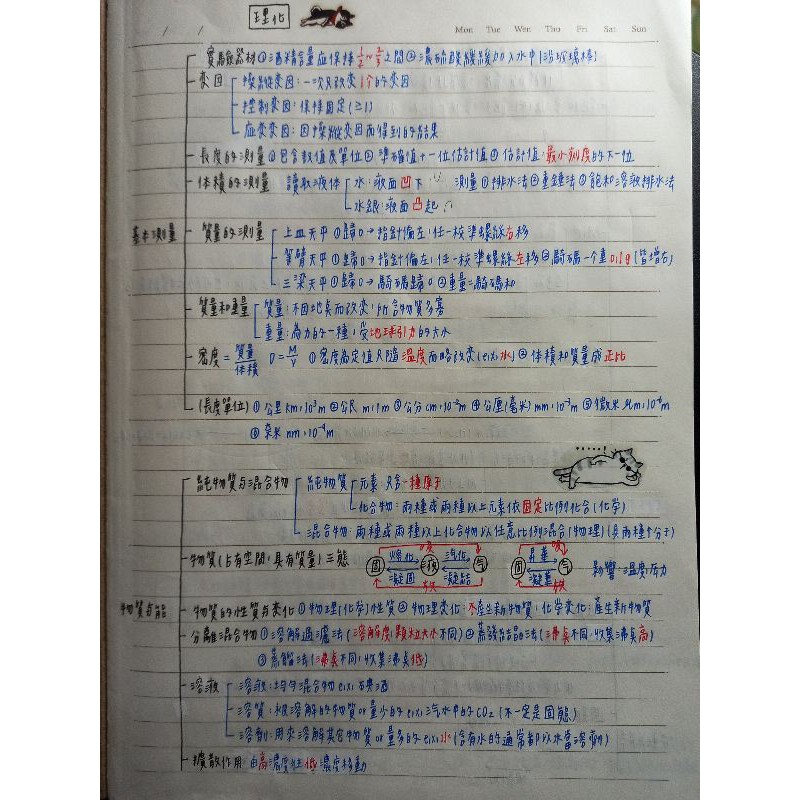 理化
Mon Tue Wen Thu Fri Sat Sun
實驗器材 ①酒精含量應保持½~⅔之間 ②濃硫酸緩緩加入水中(沿玻璃棒)
變因 操縱變因:一次只改變1个的變因
控制變因:保持固定(≥1)
應變變因:因操縱變因而得到的結果
長度的測量 ①包含數值及單位 ②準確值+一位估計值 ③估計值:最小刻度的下一位
体積的測量 讀取液体 水:液面凹下 測量①排水法②重錘法③飽和溶液排水法
水銀:液面凸起
基本測量
質量的測量 上皿天平 ①歸0→指針偏左:任一校準螺絲右移
等臂天平 ①歸0→指針偏左:任一校準螺絲左移 ②騎碼一个重0.1g(皆增右)
三梁天平 ①歸0→騎碼歸0 ②重量=騎碼和
質量和重量 質量:不因地點而改變,所含物質多寡
重量:為力的一種,受地球引力的大小
密度=質量/体積 D=M/V ①密度為定值只隨溫度而略改變(ex:水) ②体積和質量成正比
(長度單位) ①公里km:10³m ②公尺m:1m ③公分cm:10⁻²m ④公厘(毫米)mm:10⁻³m ⑤微米μm:10⁻⁶m
⑥奈米nm:10⁻⁹m
純物質与混合物 純物質 元素:只含一種原子
化合物:兩種或兩種以上元素依固定比例化合(化学)
混合物:兩種或兩種以上化合物以任意比例混合(物理)(具兩種个分子)
物質(占有空間,具有質量)三態 固 熔化 凝固 液 汽化 凝結 气 吸 放 固 昇華 凝華 气 吸 放 影響:溫度,压力
物質与能
物質的性質与變化 ①物理(化学)性質 ②物理變化:不產生新物質;化学變化:產生新物質
分離混合物 ①溶解過濾法(溶解度,顆粒大小不同) ②蒸發結晶法(沸點不同,收集沸點高)
③蒸餾法(沸點不同,收集沸點低)
溶液 溶液:均勻混合物 ex:碘酒
溶質:被溶解的物質or量少的 ex:汽水中的CO₂(不一定是固態)
溶劑:用來溶解其它物質or量多的 ex:水(含有水的通常都以水當溶劑)
擴散作用:由高濃度往低濃度移動